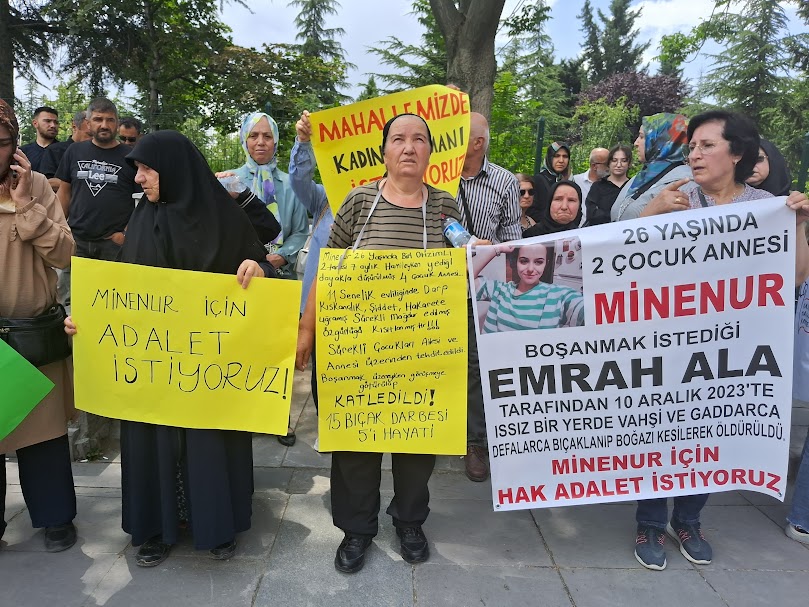 MAHALLEMİZDE
KADIN
İSTİYORUZ
California
Lee
MİNENUR İÇİN
ADALET
İSTİYORUZ!
Minenur 26 Yaşında Biri Otizimli
2 tanesi 7 aylık Hamileyken yediği
dayakla düşürülmüş 4 Çocuk Annesi
11 Senelik evliliğinde Darp
Kıskançlık, Şiddet, Hakarete
uğramış Sürekli Mağdur edilmiş
Özgürlüğü Kısıtlanmıştır!!!
Sürekli Çocukları Ailesi ve
Annesi Üzerinden tehdit edildi.
Boşanmak üzereyken görüşmeye
götürülüp
KATLEDİLDİ!
15 BIÇAK DARBESİ
5'i HAYATİ
26 YAŞINDA
2 ÇOCUK ANNESİ
MİNENUR
BOŞANMAK İSTEDİĞİ
EMRAH ALA
TARAFINDAN 10 ARALIK 2023'TE
ISSIZ BİR YERDE VAHŞİ VE GADDARCA
DEFALARCA BIÇAKLANIP BOĞAZI KESİLEREK ÖLDÜRÜLDÜ.
MİNENUR İÇİN
HAK ADALET İSTİYORUZ